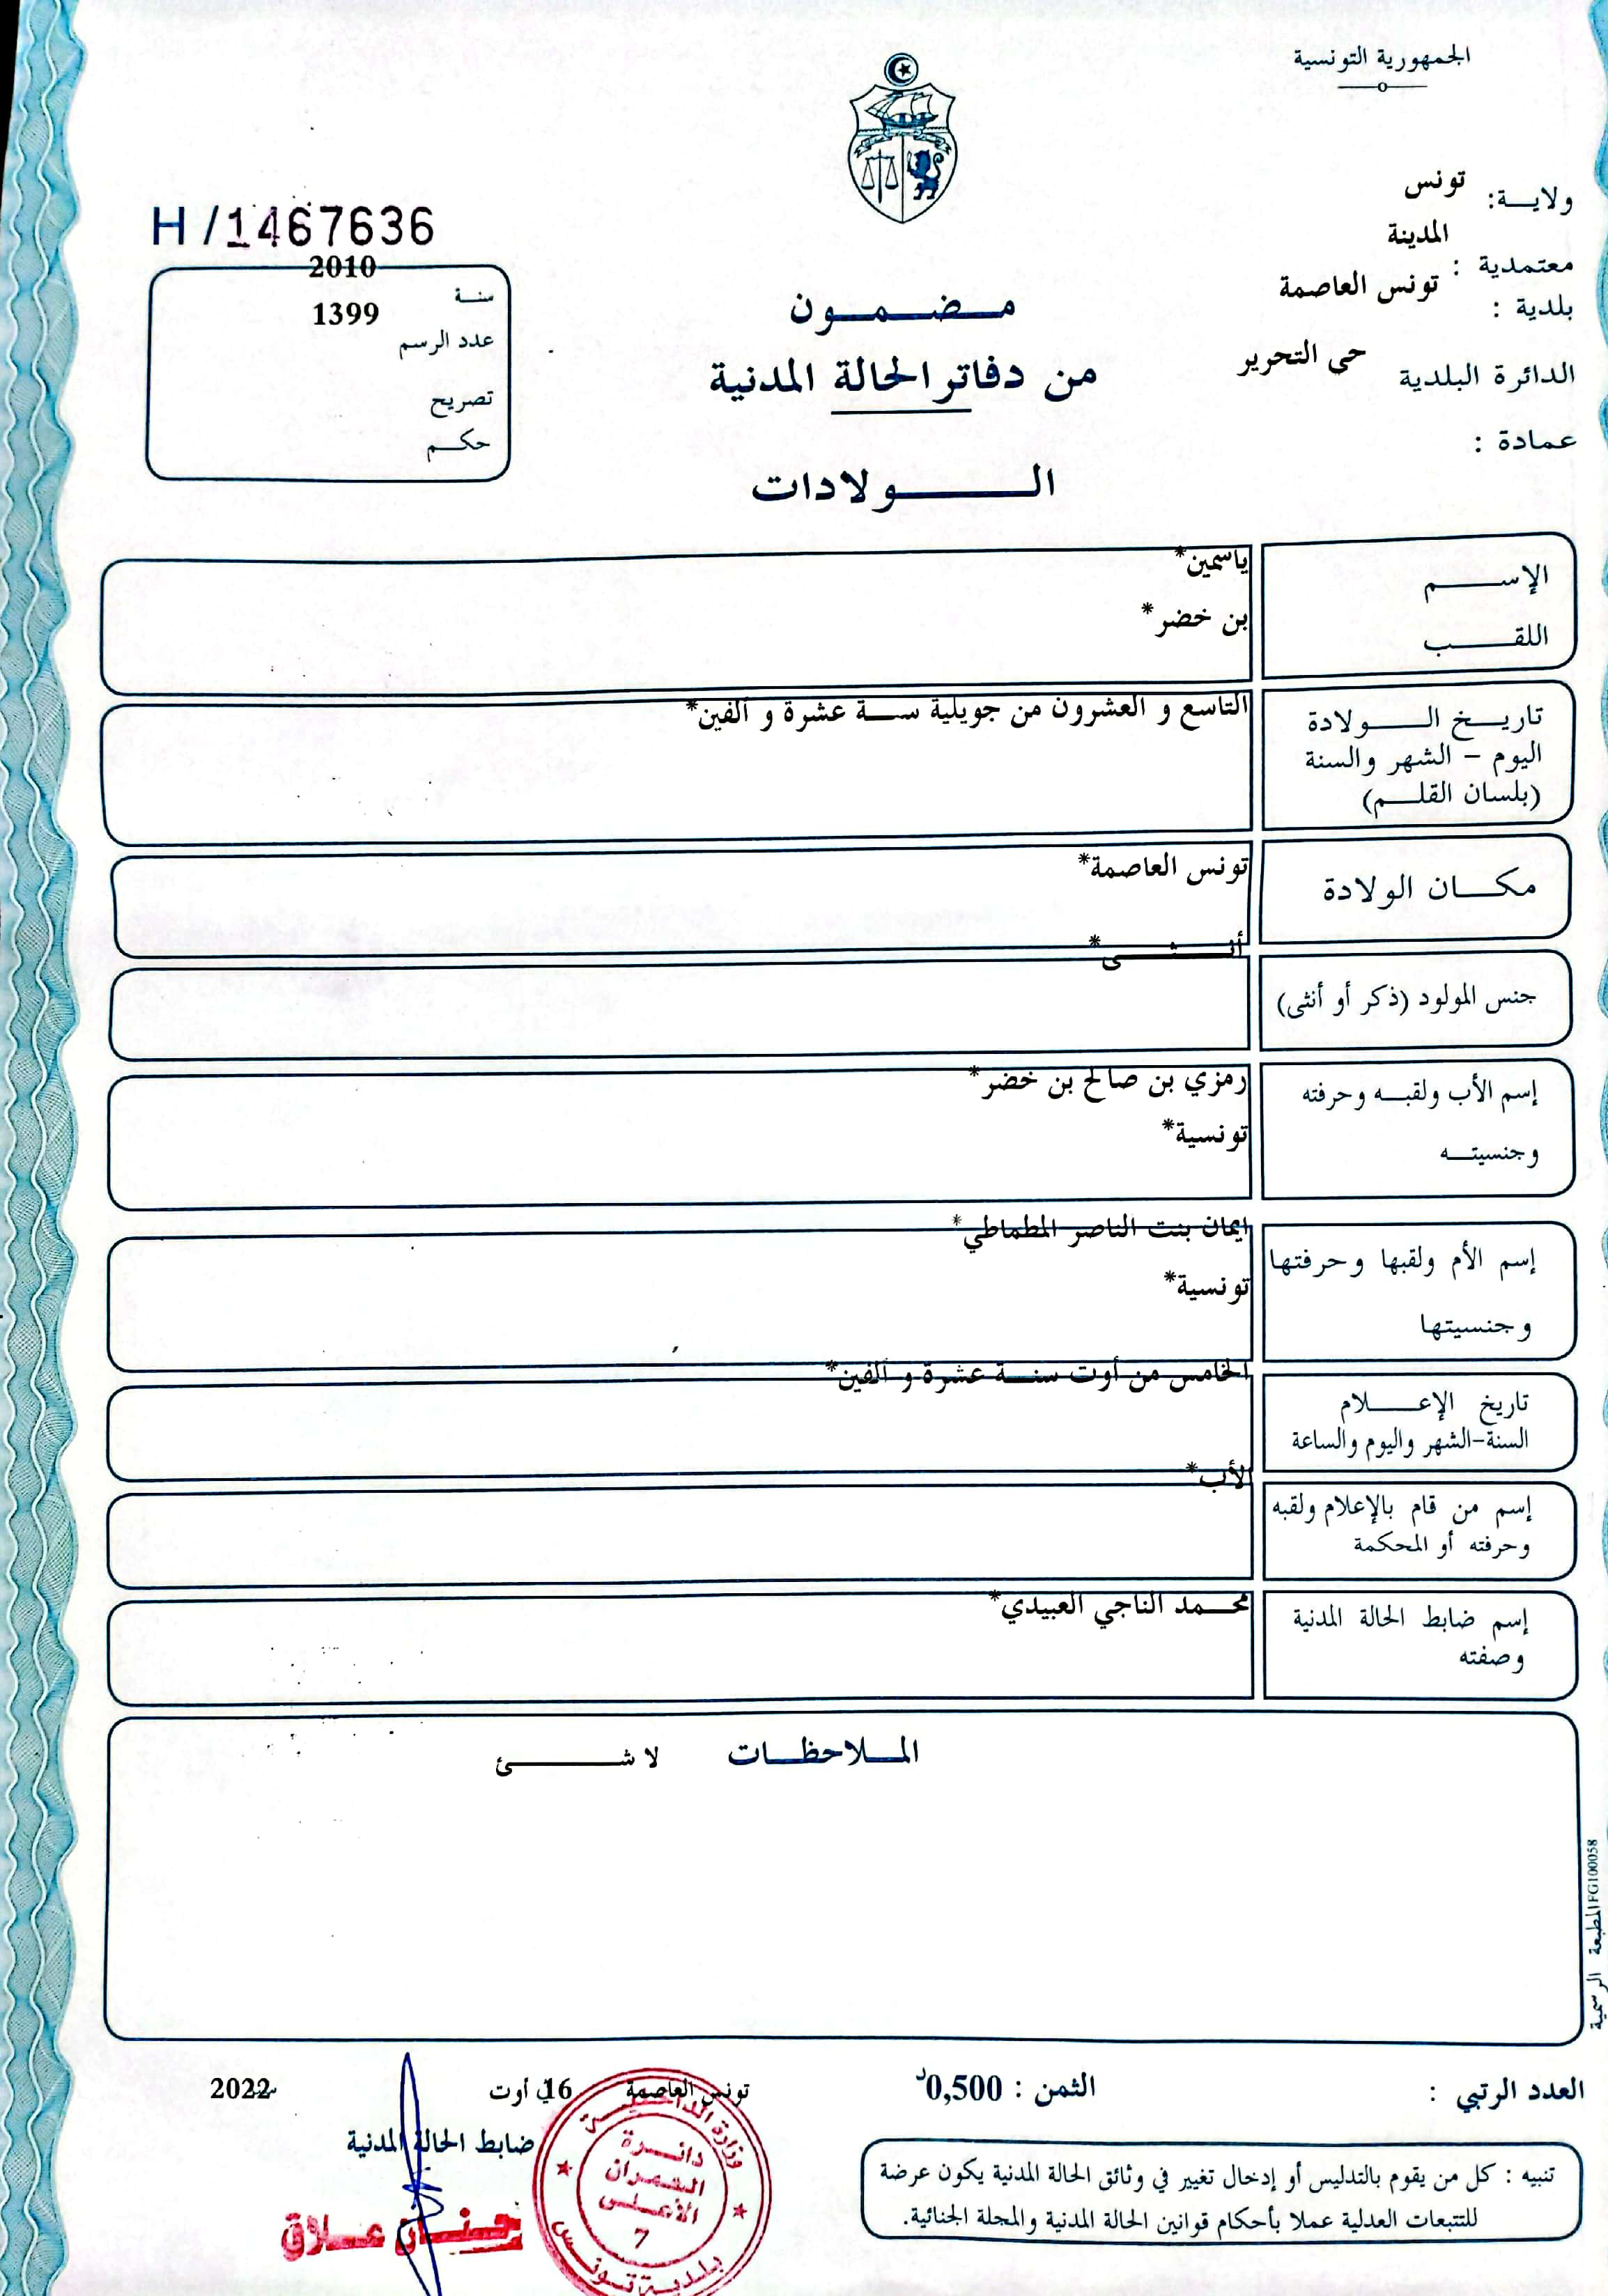 الجمهورية التونسية
ولايـــة: تونس
معتمدية : المدينة
بلدية : تونس العاصمة
الدائرة البلدية حى التحرير
عمادة :
H/1467636
سنة 2010
عدد الرسم 1399
تصريح
حكم
مضمون
من دفاتر الحالة المدنية
الولادات
الإسم ياسمين*
اللقب بن خضر*
تاريخ الولادة التاسع و العشرون من جويلية سنة عشرة و ألفين*
اليوم – الشهر والسنة
(بلسان القلم)
مكان الولادة تونس العاصمة*
جنس المولود (ذكر أو أنثى) أنثى*
إسم الأب ولقبه وحرفته رمزي بن صالح بن خضر*
وجنسيته تونسية*
إسم الأم ولقبها وحرفتها ايمان بنت الناصر المطماطي*
وجنسيتها تونسية*
تاريخ الإعلام الخامس من أوت سنة عشرة و ألفين*
السنة-الشهر واليوم والساعة
إسم من قام بالإعلام ولقبه الأب*
وحرفته أو المحكمة
إسم ضابط الحالة المدنية محمد الناجي العبيدي*
وصفته
الملاحظات لا شئ
المطبعة الرسمية FG100058
العدد الرتبي :
الثمن : 0,500د
تونس العاصمة في 16 أوت سنة 2022
ضابط الحالة المدنية
حنان علاق
وزارة الداخلية
دائرة
العمران
الأعلى
7
بلدية تونس
تنبيه : كل من يقوم بالتدليس أو إدخال تغيير في وثائق الحالة المدنية يكون عرضة
للتتبعات العدلية عملا بأحكام قوانين الحالة المدنية والمجلة الجنائية.